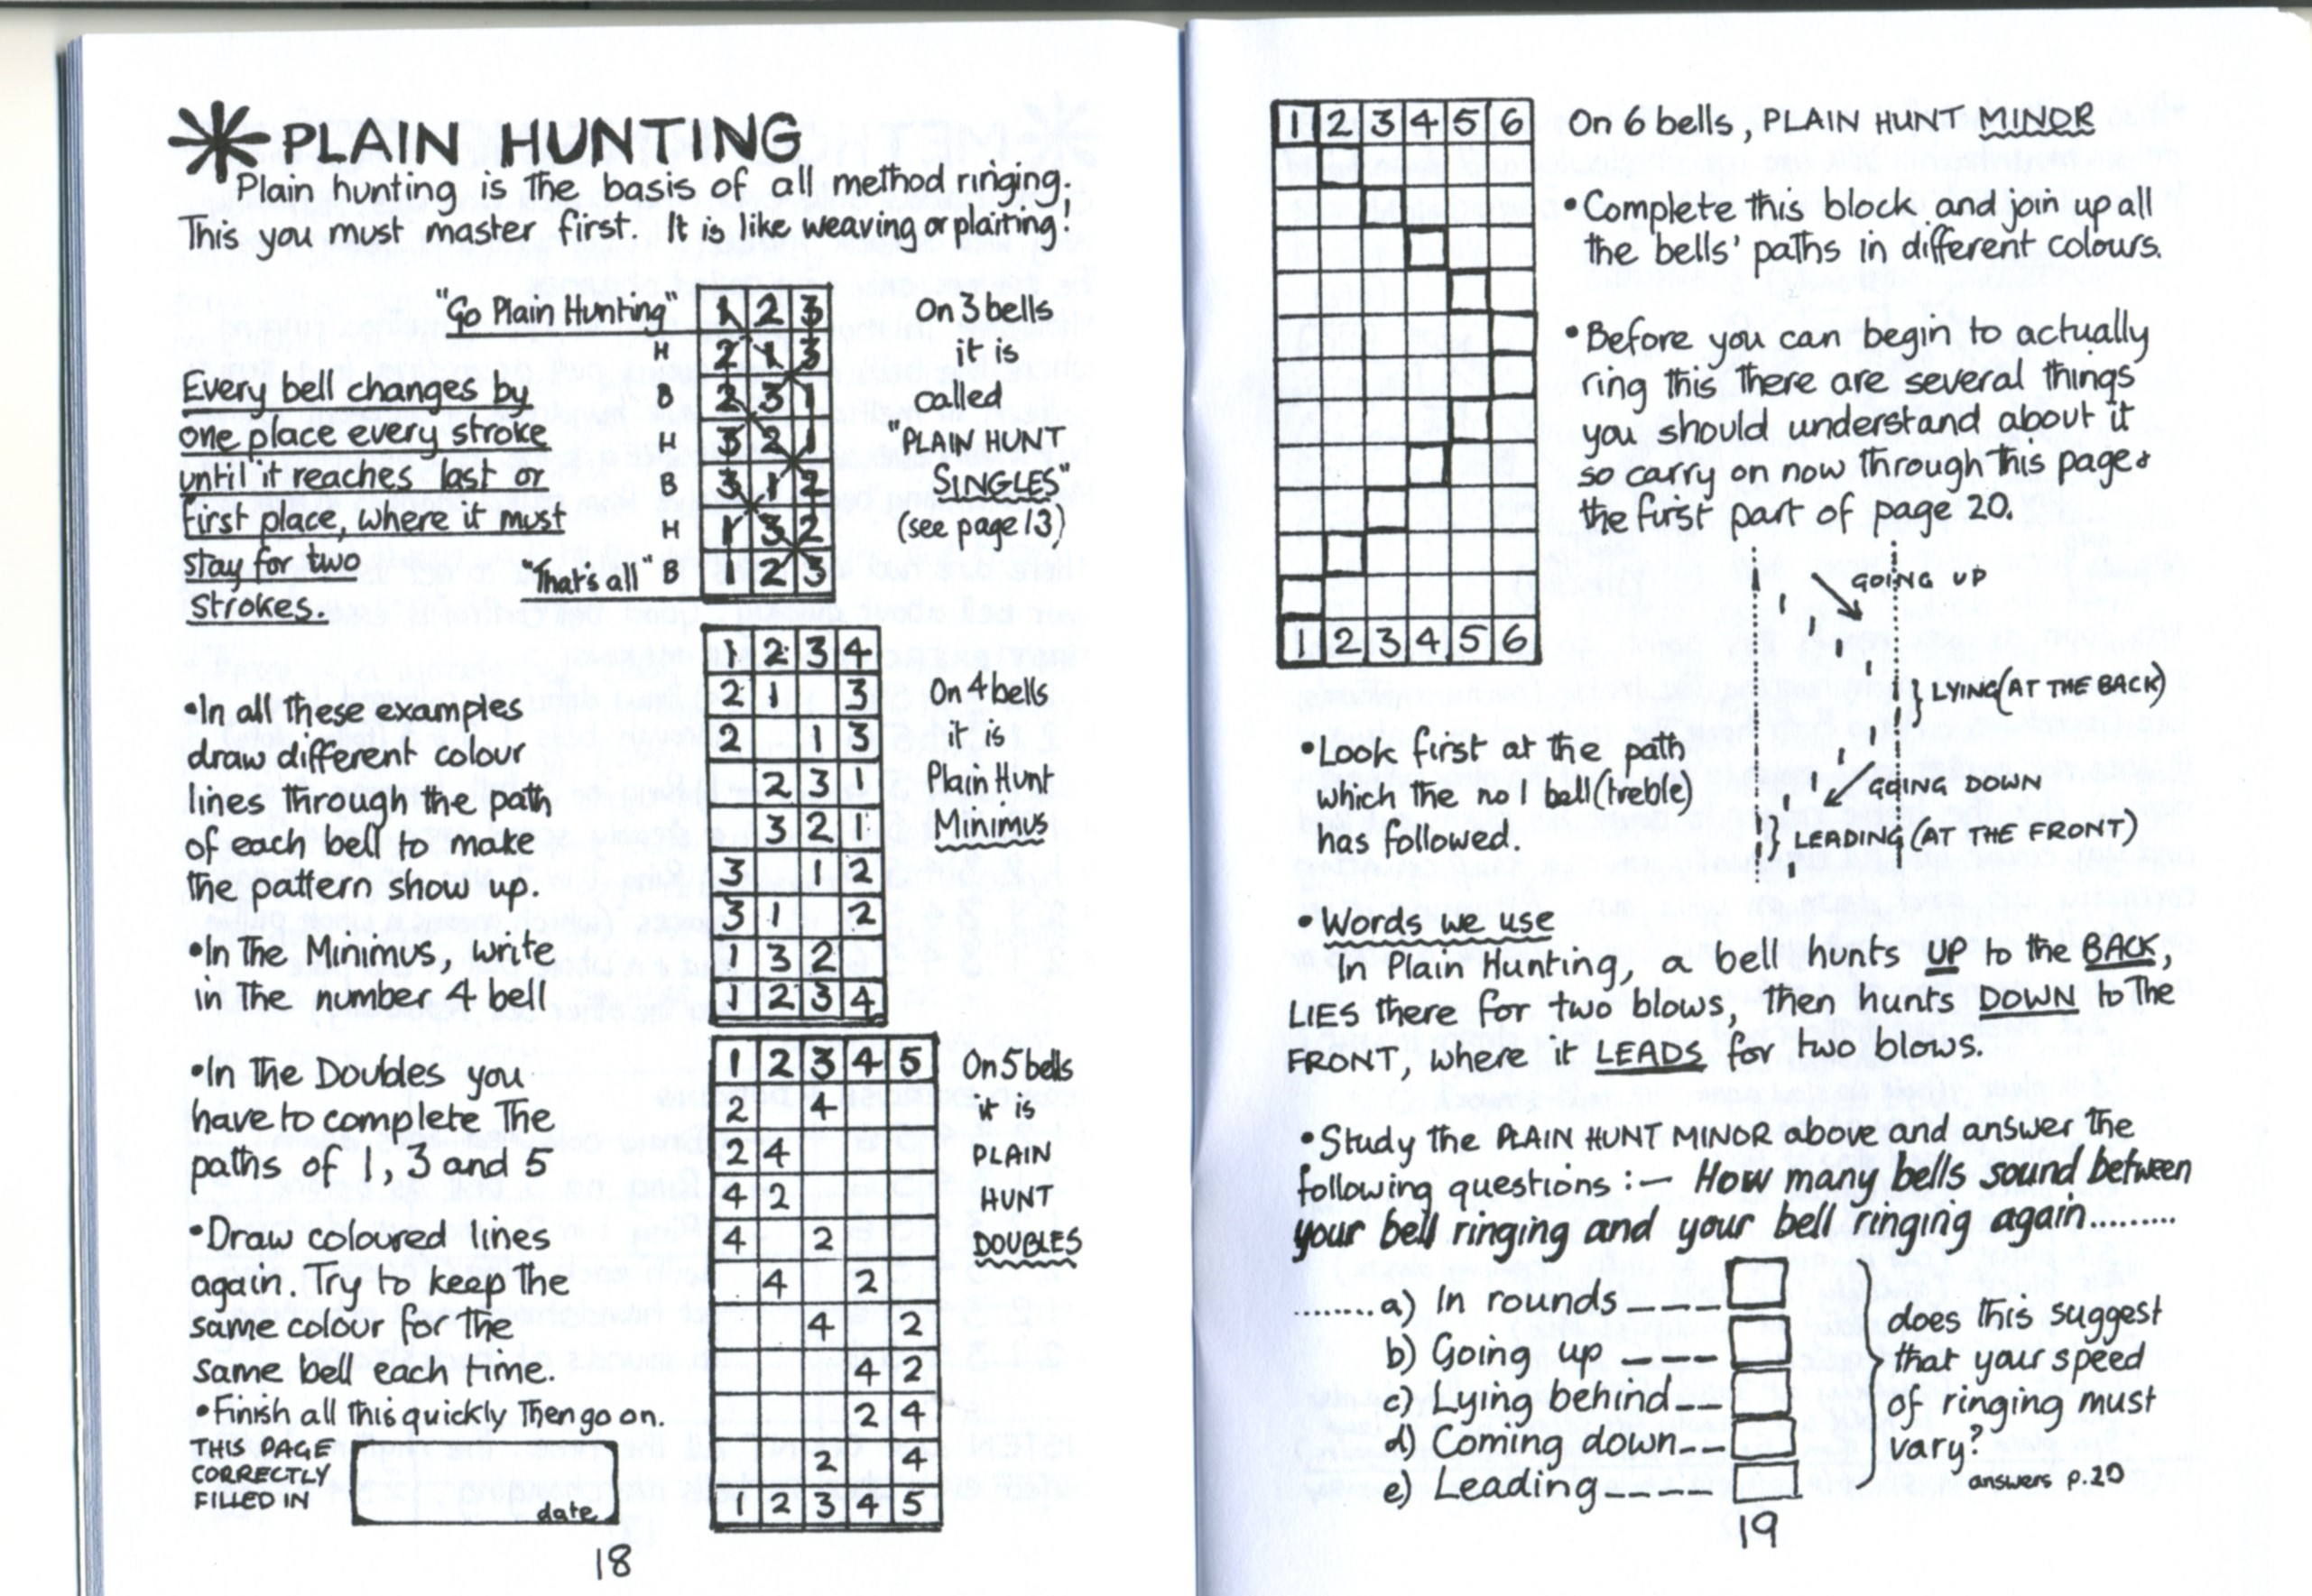 PLAIN HUNTING
Plain hunting is the basis of all method ringing.
This you must master first. It is like weaving or plaiting!
"Go Plain Hunting"
Every bell changes by
one place every stroke
until it reaches last or
first place, where it must
stay for two
strokes.
"That's all"
1 2 3
H 2 1 3
B 2 3 1
H 3 2 1
B 3 1 2
H 1 3 2
B 1 2 3
On 3 bells
it is
called
"PLAIN HUNT
SINGLES"
(see page 13)
•In all these examples
draw different colour
lines through the path
of each bell to make
the pattern show up.
•In the Minimus, write
in the number 4 bell
1 2 3 4
2 1 3
2 1 3
2 3 1
3 2 1
3 1 2
3 1 2
1 3 2
1 2 3 4
On 4 bells
it is
Plain Hunt
Minimus
•In the Doubles you
have to complete the
paths of 1, 3 and 5
•Draw coloured lines
again. Try to keep the
same colour for the
same bell each time.
•Finish all this quickly then go on.
THIS PAGE
CORRECTLY
FILLED IN
date
1 2 3 4 5
2 4
2 4
4 2
4 2
4 2
4 2
4 2
2 4
2 4
1 2 3 4 5
On 5 bells
it is
PLAIN
HUNT
DOUBLES
18
1 2 3 4 5 6
1 2 3 4 5 6
On 6 bells, PLAIN HUNT MINOR
•Complete this block and join up all
the bells' paths in different colours.
•Before you can begin to actually
ring this there are several things
you should understand about it
so carry on now through this page &
the first part of page 20.
GOING UP
} LYING (AT THE BACK)
GOING DOWN
} LEADING (AT THE FRONT)
•Look first at the path
which the no 1 bell (treble)
has followed.
•Words we use
In Plain Hunting, a bell hunts UP to the BACK,
LIES there for two blows, then hunts DOWN to the
FRONT, where it LEADS for two blows.
•Study the PLAIN HUNT MINOR above and answer the
following questions :— How many bells sound between
your bell ringing and your bell ringing again.........
........a) In rounds _ _ _ _
b) Going up _ _ _ _
c) Lying behind _ _
d) Coming down _ _
e) Leading _ _ _ _ _
does this suggest
that your speed
of ringing must
vary?
answers p.20
19